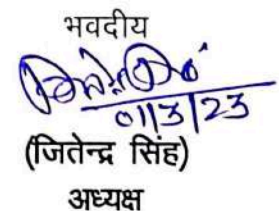 भवदीय
01/3/23
(जितेन्द्र सिंह)
अध्यक्ष